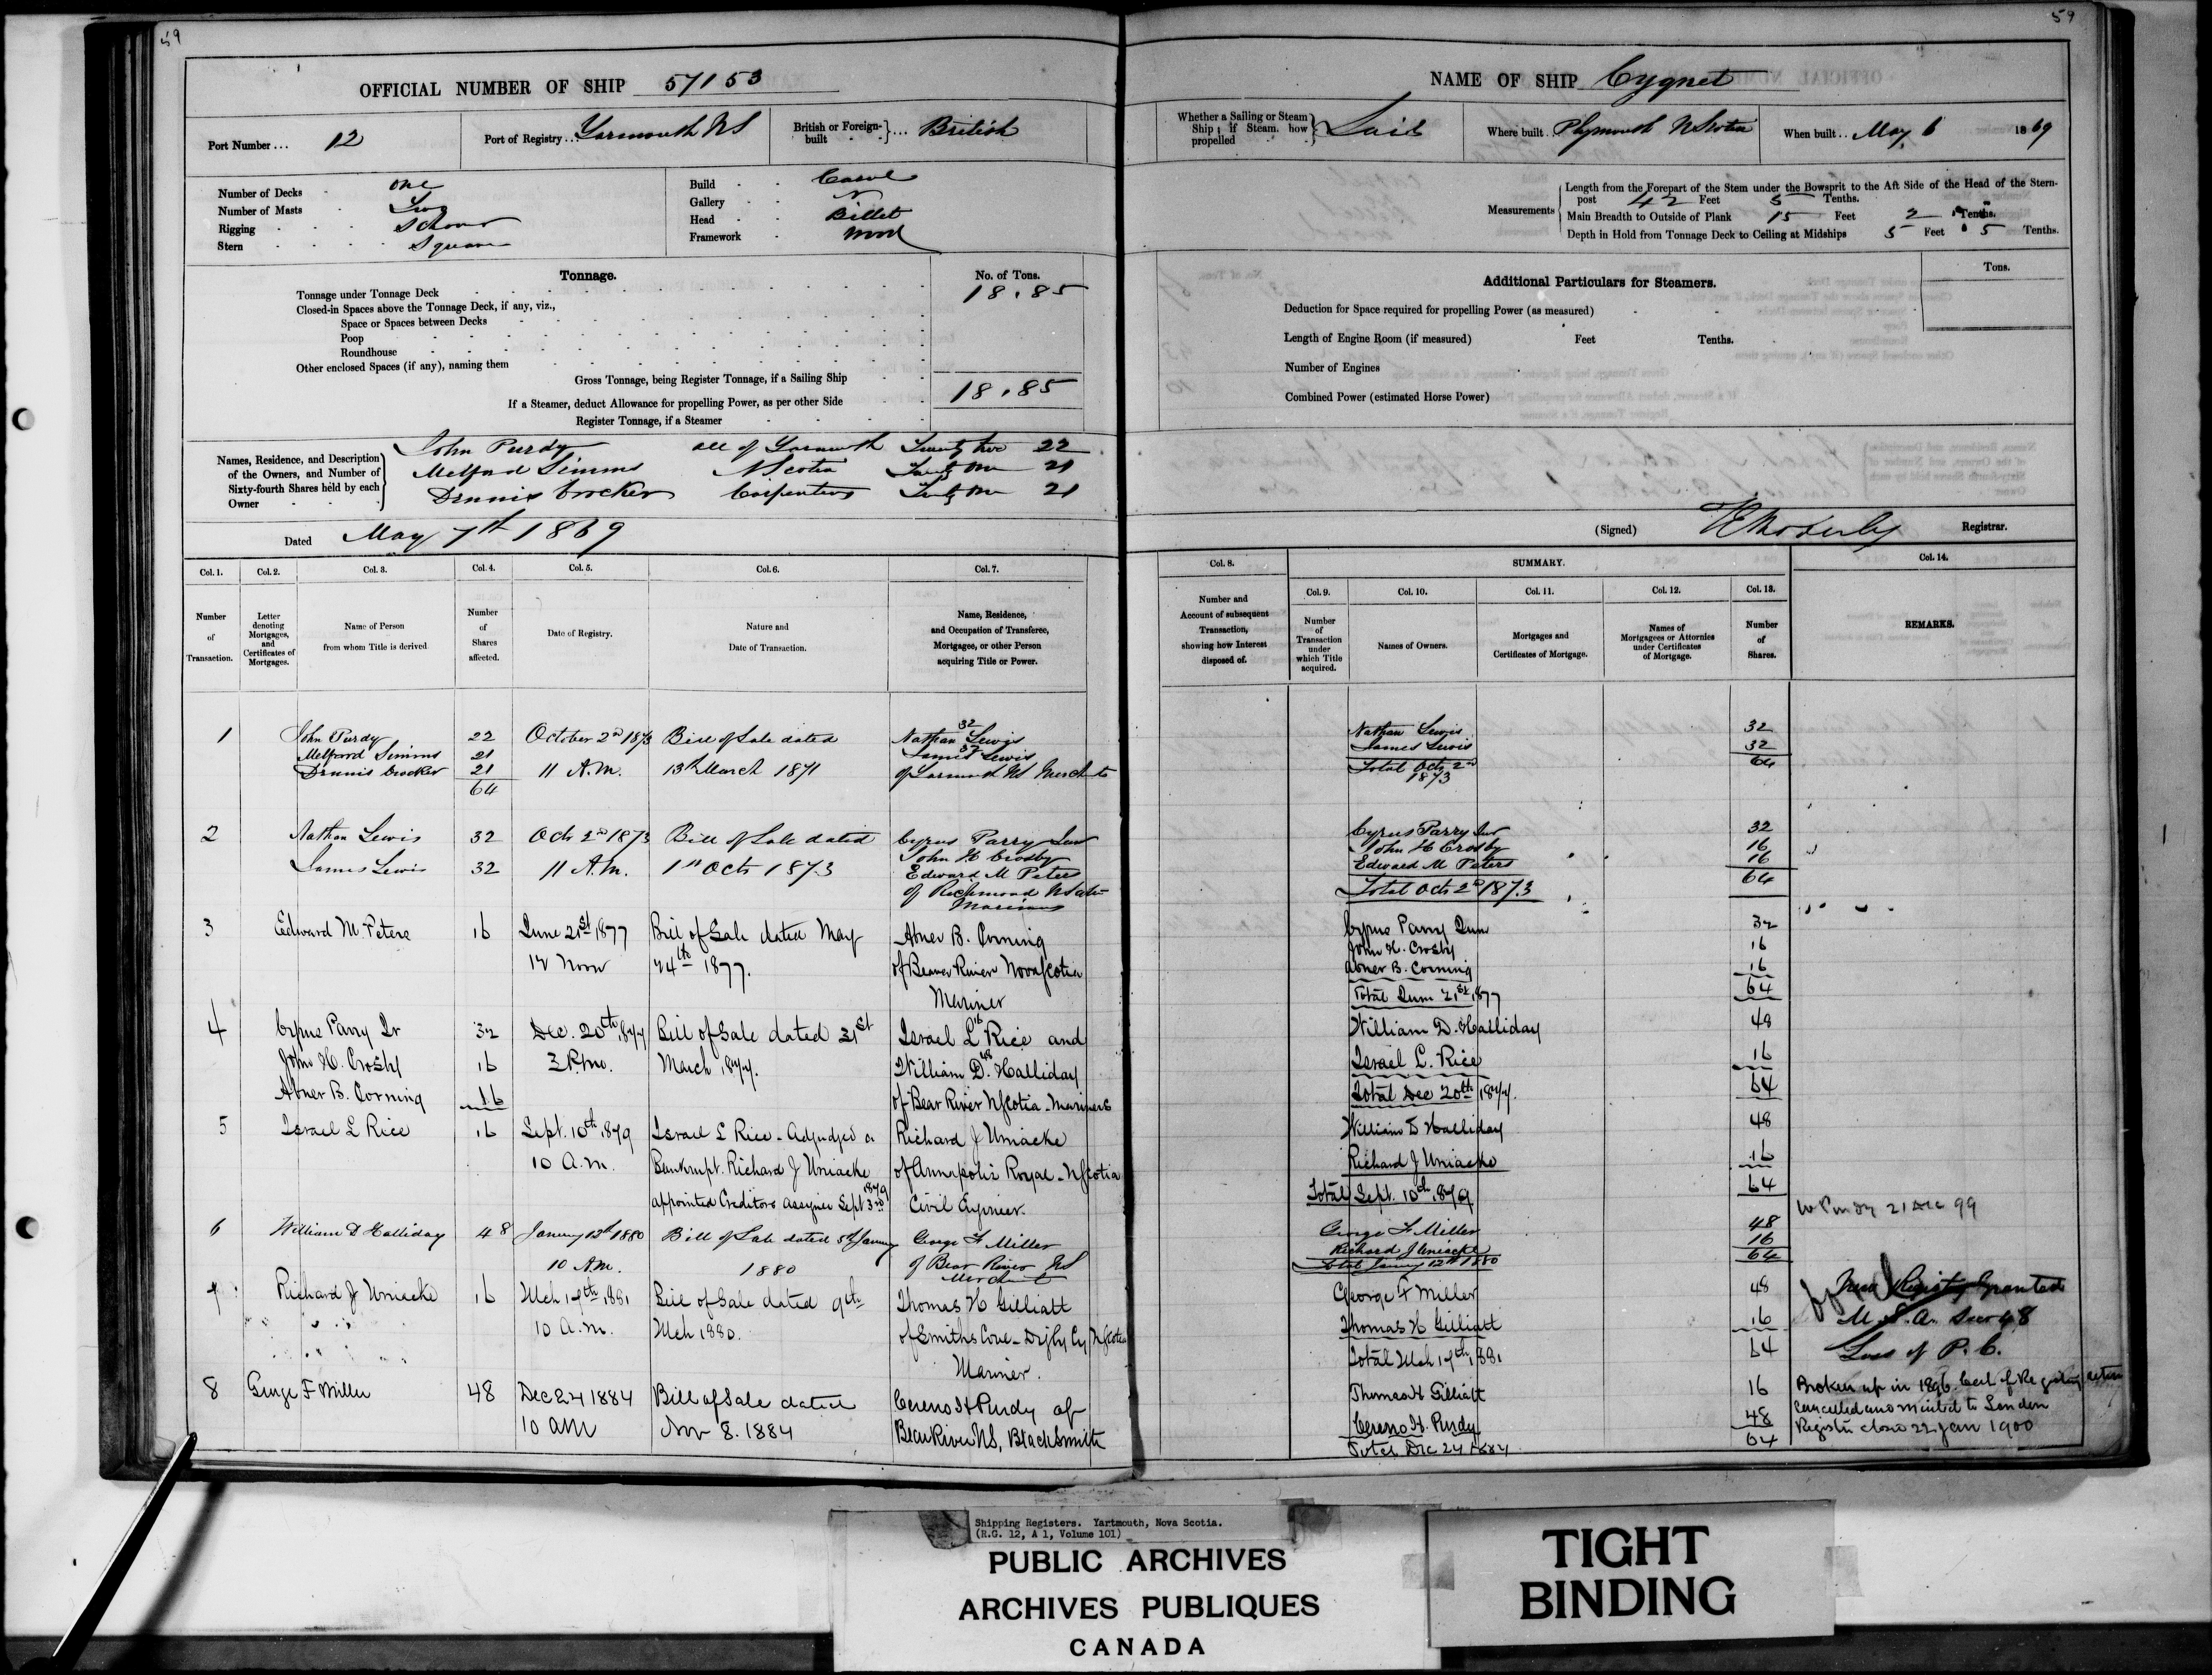 59
OFFICIAL NUMBER OF SHIP 57153
Port Number... 12
Port of Registry... Yarmouth NS
British or Foreign-built ... British
Number of Decks - one
Number of Masts - Two
Rigging - Schooner
Stern - Square
Build - Carvel
Gallery -
Head - Billet
Framework - Wood
Tonnage.
No. of Tons.
Tonnage under Tonnage Deck 18.85
Closed-in Spaces above the Tonnage Deck, if any, viz.,
Space or Spaces between Decks
Poop
Roundhouse
Other enclosed Spaces (if any), naming them
Gross Tonnage, being Register Tonnage, if a Sailing Ship 18.85
If a Steamer, deduct Allowance for propelling Power, as per other Side
Register Tonnage, if a Steamer
Names, Residence, and Description of the Owners, and Number of Sixty-fourth Shares held by each Owner
John Purdy all of Yarmouth Twenty two 22
Melford Simms N Scotia Twenty one 21
Dennis Crocker Carpenters Twenty one 21
Dated May 7th 1869
Col. 1. Col. 2. Col. 3. Col. 4. Col. 5. Col. 6. Col. 7.
Number of Transaction.
Letter denoting Mortgages, and Certificates of Mortgages.
Name of Person from whom Title is derived
Number of Shares affected.
Date of Registry.
Nature and Date of Transaction.
Name, Residence, and Occupation of Transferee, Mortgagee, or other Person acquiring Title or Power.
1 John Purdy 22 October 2nd 1873 Bill of Sale dated Nathan Lewis 32
Melford Simms 21 James Lewis 32
Dennis Crocker 21 11 A.M. 13th March 1871 of Yarmouth NS Merchants
64
2 Nathan Lewis 32 Octr 2nd 1873 Bill of Sale dated Cyrus Parry Junr
John H Crosby
James Lewis 32 11 A.M. 1st Octr 1873 Edward M Peters
of Richmond N Scotia
Mariners
3 Edward M Peters 16 June 21st 1877 Bill of Sale dated May Abner B. Corning
12 Noon 24th 1877. of Beaver River Nova Scotia
Mariner
4 Cyrus Parry Jr 32 Dec. 20th 1877 Bill of Sale dated 31st Israel L Rice 16 and
John H. Crosby 16 3 P.m. March 1877. William D. Halliday 48
Abner B. Corning 16 of Bear River N Scotia - Mariners
5 Israel L Rice 16 Sept. 10th 1879 Israel L Rice - Adjudged a Richard J Uniacke
10 A.m. Bankrupt. Richard J Uniacke of Annapolis Royal - N Scotia
appointed Creditors Assignee Sept 3rd 1879 Civil Engineer.
6 William D Halliday 48 January 12th 1880 Bill of Sale dated 5th January George F Miller
10 A.M. 1880 of Bear River NS
Merchant
7 Richard J Uniacke 16 Mch 17th 1881 Bill of Sale dated 9th Thomas H Gilliatt
10 A.m. Mch 1880. of Smiths Cove - Digby Cy N Scotia
Mariner.
8 George F Miller 48 Dec 24 1884 Bill of Sale dated Cereno H Purdy of
10 am Nov 8. 1884 Bear River NS, Blacksmith
59
NAME OF SHIP Cygnet
Whether a Sailing or Steam Ship; if Steam, how propelled Sail
Where built. Plymouth N Scotia
When built.. May 6 1869
Measurements
Length from the Forepart of the Stem under the Bowsprit to the Aft Side of the Head of the Stern-
post 42 Feet 5 Tenths.
Main Breadth to Outside of Plank 15 Feet 2 Tenths.
Depth in Hold from Tonnage Deck to Ceiling at Midships 5 Feet 5 Tenths.
Additional Particulars for Steamers.
Tons.
Deduction for Space required for propelling Power (as measured)
Length of Engine Room (if measured) Feet Tenths.
Number of Engines
Combined Power (estimated Horse Power)
(Signed) Registrar.
Col. 8. SUMMARY. Col. 14.
Col. 9. Col. 10. Col. 11. Col. 12. Col. 13.
Number and Account of subsequent Transaction, showing how Interest disposed of.
Number of Transaction under which Title acquired.
Names of Owners.
Mortgages and Certificates of Mortgage.
Names of Mortgagees or Attornies under Certificates of Mortgage.
Number of Shares.
REMARKS.
Nathan Lewis 32
James Lewis 32
Total Octr 2nd 1873 64
Cyrus Parry Junr 32
John H Crosby 16
Edward M Peters 16
Total Octr 2nd 1873 64
Cyrus Parry Jun 32
John H. Crosby 16
Abner B. Corning 16
Total June 21st 1877 64
William D. Halliday 48
Israel L. Rice 16
Total Dec 20th 1877. 64
William D Halliday 48
Richard J Uniacke 16
Total Sept. 10th 1879 64
21 Dec 99
George F Miller 48
Richard J Uniacke 16
Total January 12th 1880 64
George F Miller 48
Thomas H Gilliatt 16
Total Mch 17th 1881 64
New Registry Granted
M. S. A. Sec 48
Loss of P. C.
Thomas H Gilliatt 16
Cereno H. Purdy 48
Total Dec 24 1884 64
Broken up in 1896. Cert of Registry
cancelled and to London
Registry close 22 Jan 1900
Shipping Registers. Yartmouth, Nova Scotia.
(R.G. 12, A 1, Volume 101)
PUBLIC ARCHIVES
ARCHIVES PUBLIQUES
CANADA
TIGHT
BINDING